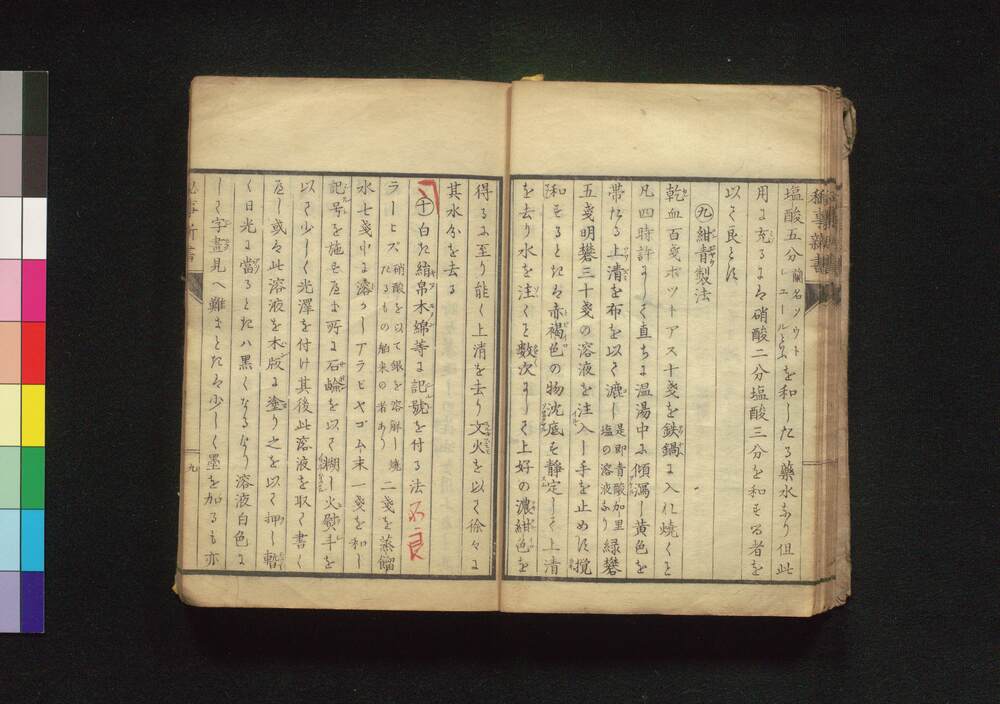 塩酸五分蘭名ソウト
レエールと云を和したる藥水なり但此
用に充るには硝酸二分塩酸三分を和する者を
以て良とす
㊈紺青製法
乾血百戔ボツトアス十戔を鉄鍋に入れ焼くこと
凡四時許にして直ちに温湯中に傾瀉し黄色を
帯たる上清を布を以て漉し是即青酸加里
塩の溶液なり緑礬
五戔明礬三十戔の溶液を注入し手を止めず攪
和するときは赤褐色の物沈底す静定して上清
を去り水を注くこと数次にして上好の濃紺色を
得るに至り能く上清を去り文火を以て徐々に
其水分を去る
㊉白た絹帛木綿等に記號を付る法不良
ラーヒス硝酸を以て銀を溶解し焼
たるもの舶来の者あり二戔を蒸餾
水七戔中に溶かしアラビヤゴム末一戔を和し
記号を施す可き所に石鹼を以て糊し火熨手を
以て少しく光澤を付け其後此溶液を取て書く
可し或は此溶液を木版に塗り之を以て押し暫
く日光に當るときハ黒くなるなり溶液白色に
して字畫見へ難きときは少しく墨を加るも亦
九